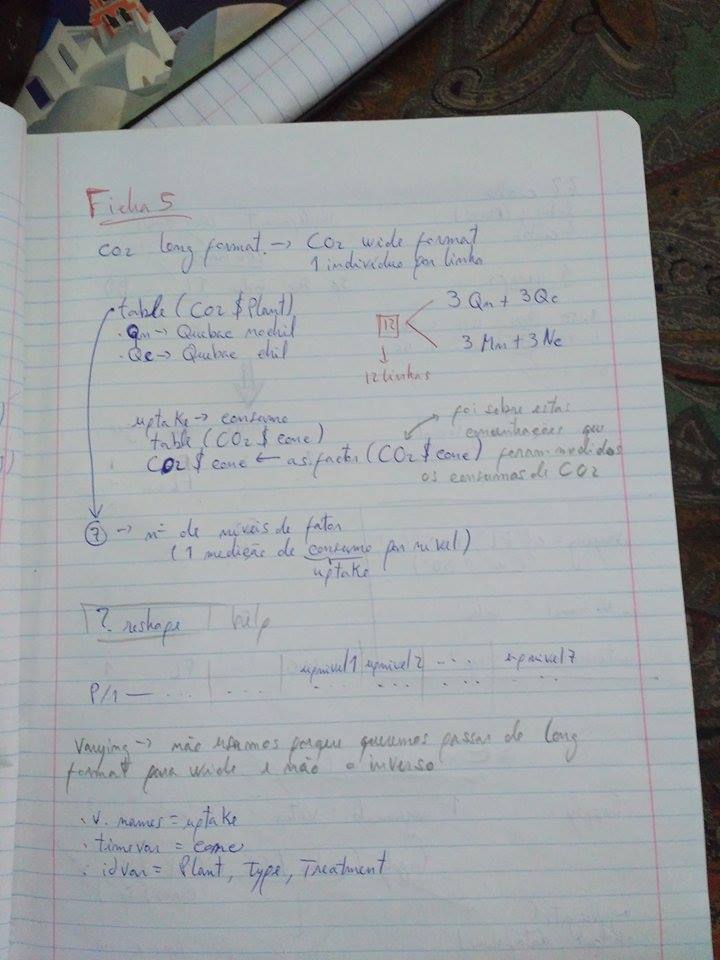 Ficha 5
CO2 long format. → CO2 wide format
1 indivíduo por linha
table (CO2 $ Plant)
3 Qn + 3Qc
. Qn →
. Qc →
12
3 Mn + 3
12 linhas
uptake → consumo
table (CO2 $ conc)
CO2 $ conc ← as.factor (CO2 $ conc)
foi sobre estas
concentrações que
foram medidos
os consumos de CO2
7 → nº de níveis de fator
(1 medição de consumo por nível)
uptake
? reshape help
upnivel 1 upnivel 2 ... upnivel 7
P/1 — ... ... ... ... ... ...
Varying → não usamos porque queremos passar de long
format para wide e não o inverso
. v.names = uptake
. timevar = conc
. idvar = Plant, Type, Treatment